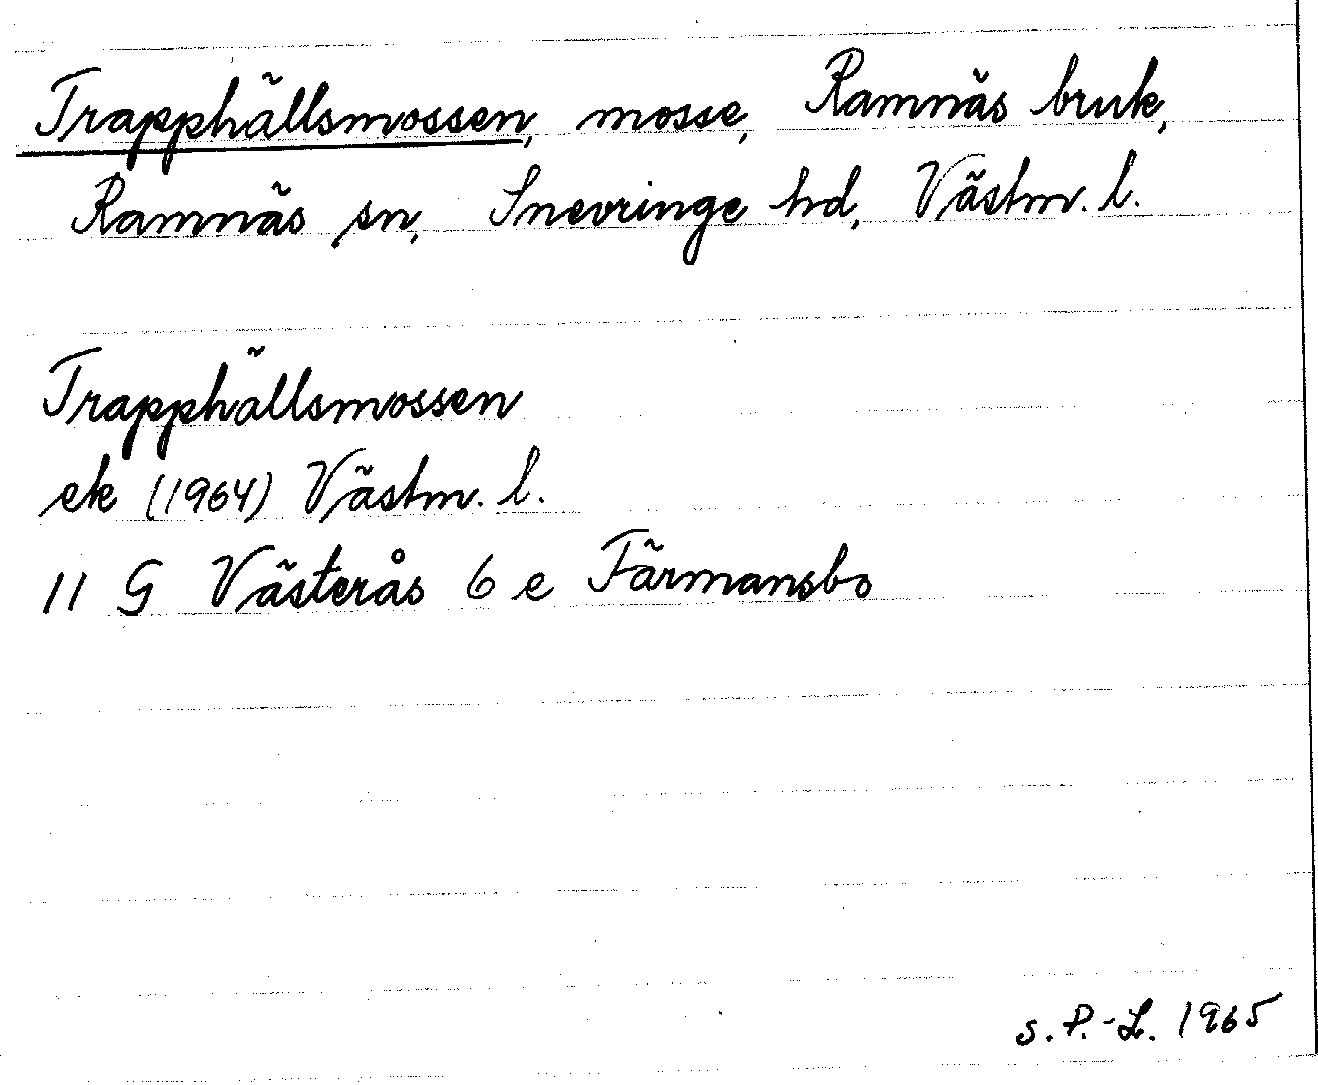 Trapphällsmossen, mosse, Ramnäs bruk,
Ramnäs sn, Snevringe hd, Västm. l.
Trapphällsmossen
ek (1964) Västm. l.
11 G Västerås 6 e Färmansbo
S. P.-L. 1965